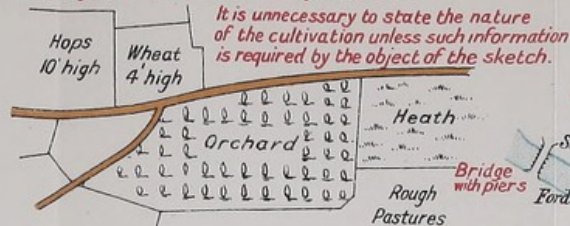 It is unnecessary to state the nature
of the cultivation unless such information
is required by the object of the sketch.
Hops
10' high
Wheat
4' high
Orchard
Heath
Bridge
with piers
Ford
Rough
Pastures